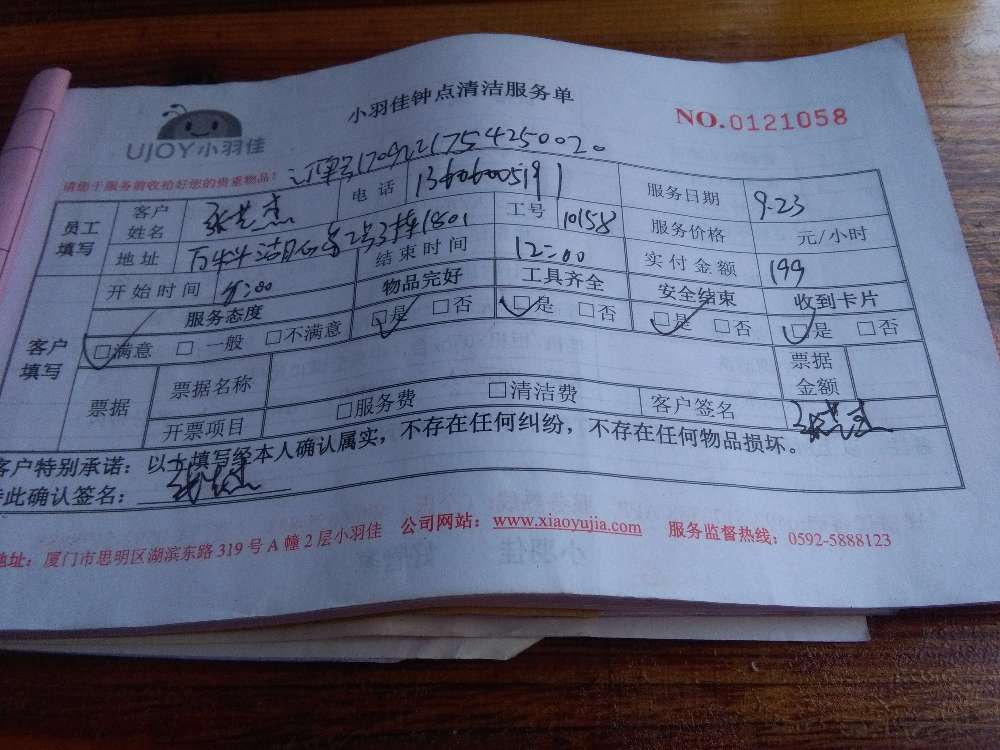 小羽佳钟点清洁服务单
NO.0121058
UJOY小羽佳
请您于服务前收拾好您的贵重物品!
员工填写 客户姓名 电话 13606005191 服务日期 9.23
地址 工号 10158 服务价格 元/小时
开始时间 结束时间 12:00 实付金额 199
客户填写 服务态度 物品完好 工具齐全 安全结束 收到卡片
□满意 □一般 □不满意 □是 □否 □是 □否 □是 □否 □是 □否
票据 票据名称 票据金额
开票项目 □服务费 □清洁费 客户签名
客户特别承诺:以上填写经本人确认属实,不存在任何纠纷,不存在任何物品损坏。
此确认签名:
地址:厦门市思明区湖滨东路 319 号 A 幢 2 层小羽佳 公司网站:www.xiaoyujia.com 服务监督热线:0592-5888123